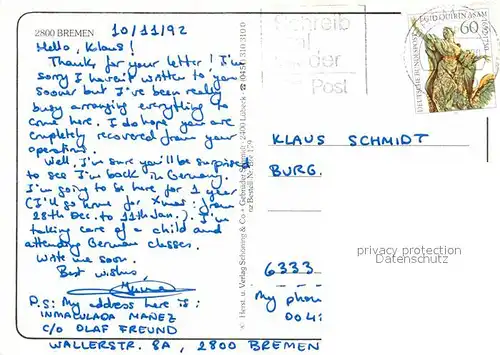 2800 BREMEN
10/11/92
Hello, Klaus!
Thanks for your letter! I'm
sorry I haven't written to you
sooner but I've been really
busy arranging everything to
come here. I do hope you are
cmpletely recovered from your
operations.
Well, I'm sure you'll be surprised
to see I'm back in Germany.
I'm going to be here for 1 year
(I'll go home for Xmas: from
28th Dec. to 11th Jan.). I'm
taking care of a child and
attending German classes.
Write me soon.
Best wishes
P.S: My address here is:
INMACULADA MAÑEZ
C/O OLAF FREUND
WALLERSTR. 8A, 2800 BREMEN
© Herst. u. Verlag Schöning & Co + Gebrüder Schmidt · 2400 Lübeck
Schreib
mal
wieder
Post
EGID QUIRIN ASAM
60
DEUTSCHE BUNDESPOST
KLAUS SCHMIDT
BURG.
privacy protection
Datenschutz
6333
My phon